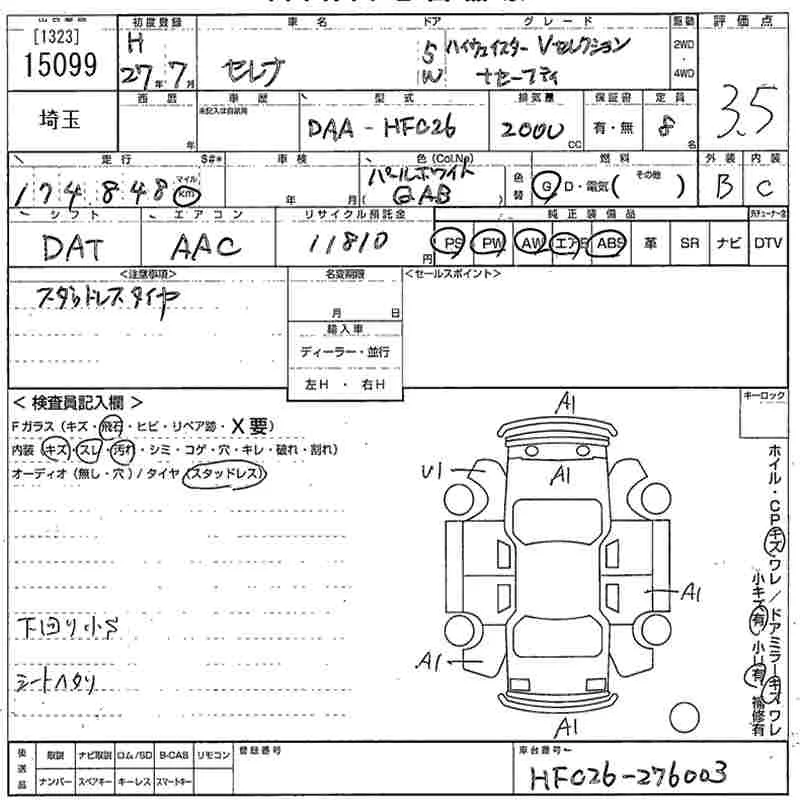 [1323]
15099
埼玉
初度登録
H
27年 7月
車名
セレナ
ドア
5
W
グレード
ハイウェイスター Vセレクション
+セーフティ
駆動
2WD
4WD
評価点
3.5
西暦
年
車歴
未記入は自家用
型式
DAA-HFC26
排気量
2000
CC
保証書
有・無
定員
8
名
走行
S#*
174,848
マイル
km
車検
年 月
色(Col.No)
パールホワイト
(GAB)
色替
燃料
G D・電気( その他 )
外装
B
内装
C
シフト
DAT
エアコン
AAC
リサイクル預託金
11810
円
純正装備品
PS PW AW エアB ABS 革 SR ナビ DTV
<注意事項>
スタッドレスタイヤ
名変期限
月 日
輸入車
ディーラー・並行
左H・右H
<セールスポイント>
<検査員記入欄>
Fガラス(キズ・飛石・ヒビ・リペア跡・X要)
内装(キズ・スレ・汚れ・シミ・コゲ・穴・キレ・破れ・割れ)
オーディオ(無し・穴)/タイヤ(スタッドレス)
下回り小S
シートヘタリ
A1
A1
U1
A1
A1
A1
キーロック
ホイル・CPキズワレ/ドアミラーキズワレ
小キズ有 小U有 補修有
後送品
取説 ナビ取説 ロム/SD B-CAS リモコン
ナンバー スペアキー キーレス スマートキー
登録番号
車台番号
HFC26-276003